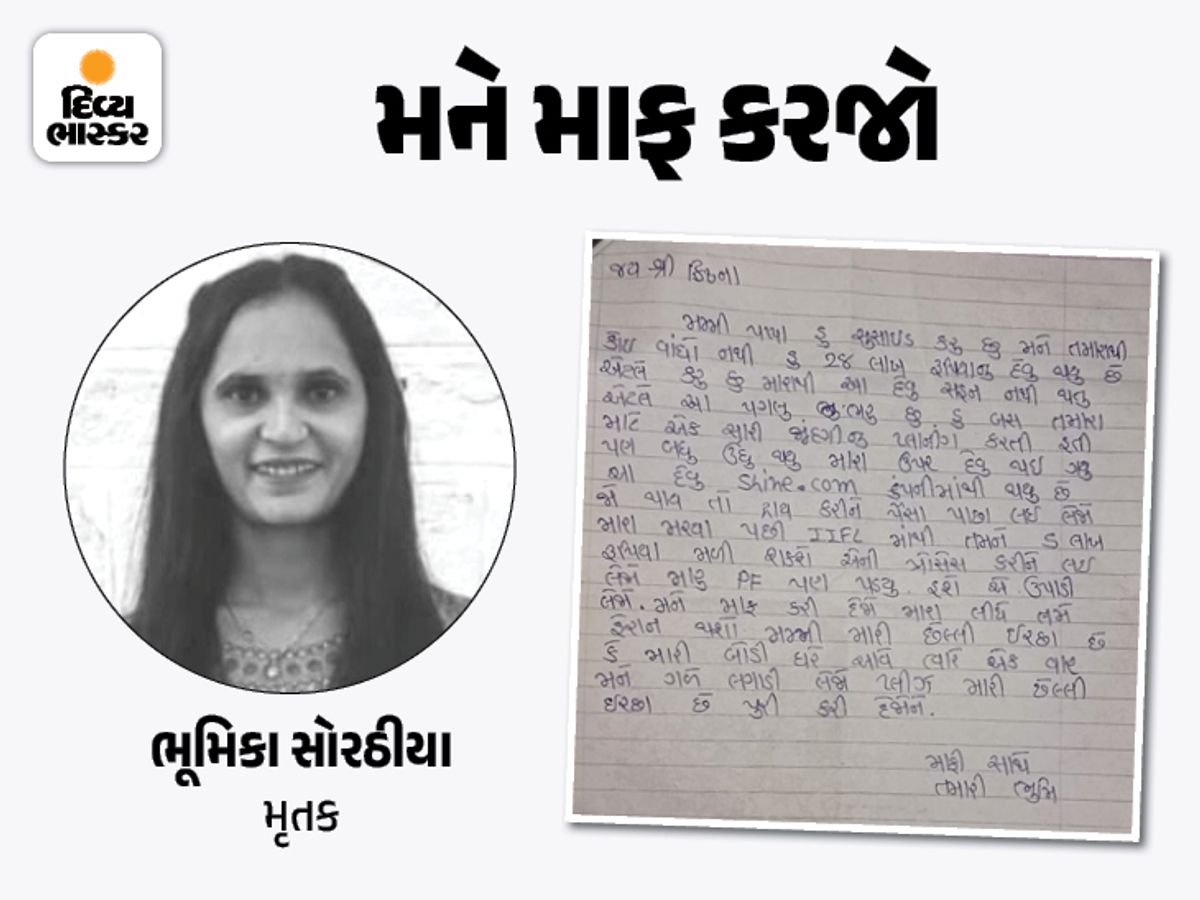 દિવ્ય
ભાસ્કર
મને માફ કરજો
જય શ્રી ક્રિષ્ના
મમ્મી પાપા હુ સુસાઇડ કરુ છુ મને તમારાથી
કોઇ વાંધો નથી હુ 28 લાખ રૂપિયાનુ દેવુ થયુ છે
એટલે કરુ છુ મારાથી આ દેવુ સહન નથી થતુ
એટલે આ પગલુ ભરુ છુ હુ બસ તમારા
માટે એક સારી જીંદગીનુ પ્લાનીંગ કરતી હતી
પણ બધુ ઉંધુ થયુ મારા ઉપર દેવુ થઇ ગયુ
આ દેવુ Shine.com કંપનીમાંથી થયુ છે
જો થાય તો દાવ કરીને પૈસા પાછા લઇ લેજો
મારા મરવા પછી IIFL માંથી તમને 5 લાખ
રૂપિયા મળી શકશે એની પ્રોસેસ કરીને લઇ
લેજો મારુ PF પણ પડયુ હશે એ ઉપાડી
લેજો. મને માફ કરી દેજો મારા લીધે તમે
હેરાન થશો મમ્મી મારી છેલ્લી ઈચ્છા છે
કે મારી બોડી ઘરે આવે ત્યારે એક વાર
મને ગળે લગાડી લેજો પ્લીઝ મારી છેલ્લી
ઈચ્છા છે પુરી કરી દેજોને.
માફી સાથે
તમારી ભુમિ
ભૂમિકા સોરઠીયા
મૃતક